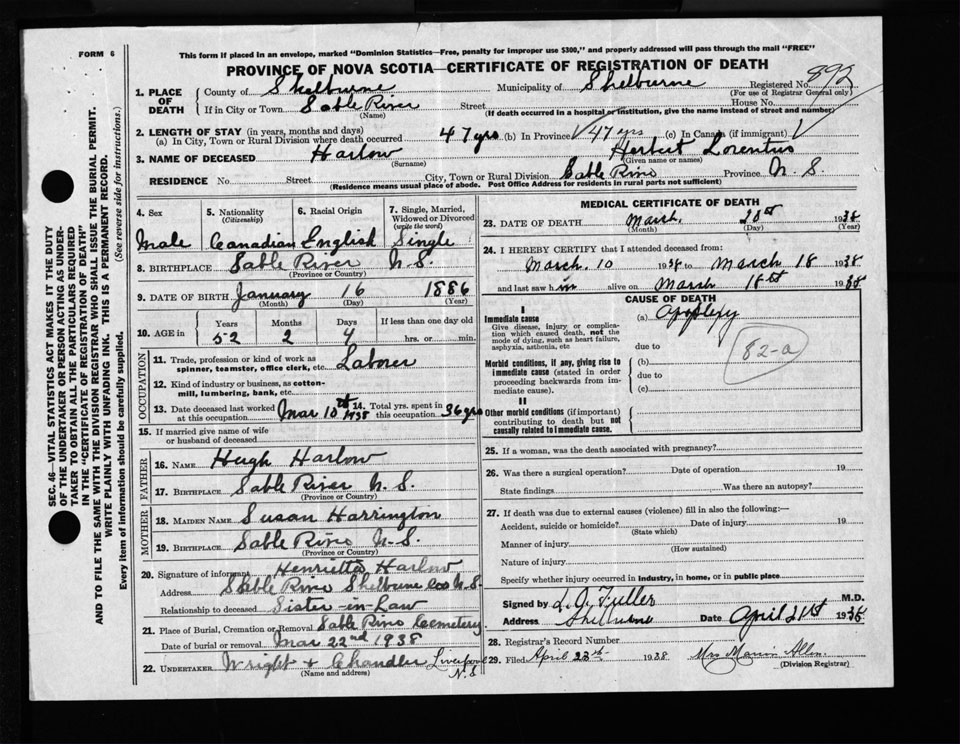 FORM 6
This form if placed in an envelope, marked "Dominion Statistics—Free, penalty for improper use $300," and properly addressed will pass through the mail "FREE"
PROVINCE OF NOVA SCOTIA—CERTIFICATE OF REGISTRATION OF DEATH
1. PLACE OF DEATH
County of Shelburne Municipality of Shelburne Registered No. 892
(For use of Registrar General only)
If in City or Town Sable River Street House No.
(Name) (If death occurred in a hospital or institution, give the name instead of street and number)
2. LENGTH OF STAY (in years, months and days)
(a) In City, Town or Rural Division where death occurred 47 yrs (b) In Province 47 yrs (c) In Canada (if immigrant)
3. NAME OF DECEASED Harlow Herbert
(Surname) (Given name or names)
RESIDENCE No. Street City, Town or Rural Division Sable River Province N. S.
(Residence means usual place of abode. Post Office Address for residents in rural parts not sufficient)
4. Sex 5. Nationality (Citizenship) 6. Racial Origin 7. Single, Married, Widowed or Divorced (write the word)
Male Canadian English Single
8. BIRTHPLACE Sable River N. S.
(Province or Country)
9. DATE OF BIRTH January 16 1886
(Month) (Day) (Year)
10. AGE in Years Months Days If less than one day old
52 2 4 hrs. or min.
OCCUPATION
11. Trade, profession or kind of work as spinner, teamster, office clerk, etc. Laborer
12. Kind of industry or business, as cotton-mill, lumbering, bank, etc.
13. Date deceased last worked at this occupation Mar 10th 1938 14. Total yrs. spent in this occupation 36 yrs
15. If married give name of wife or husband of deceased
FATHER
16. NAME Hugh Harlow
17. BIRTHPLACE Sable River N. S.
(Province or Country)
MOTHER
18. MAIDEN NAME Susan Harrington
19. BIRTHPLACE Sable River N. S.
(Province or Country)
20. Signature of informant Henrietta Harlow
Address Sable River Shelburne Co N. S.
Relationship to deceased Sister-in-Law
21. Place of Burial, Cremation or Removal Sable River Cemetery
Date of burial or removal Mar 22nd 1938
22. UNDERTAKER Wright & Chandler Liverpool N. S.
(Name and address)
MEDICAL CERTIFICATE OF DEATH
23. DATE OF DEATH March 20st 1938
(Month) (Day) (Year)
24. I HEREBY CERTIFY that I attended deceased from:
March 10 1938 to March 18 1938
and last saw him alive on March 18st 1938
CAUSE OF DEATH
I
Immediate cause
Give disease, injury or complication which caused death, not the mode of dying, such as heart failure, asphyxia, asthenia, etc
(a) Apoplexy
due to
82-a
Morbid conditions, if any, giving rise to immediate cause (stated in order proceeding backwards from immediate cause).
(b)
due to
(c)
II
Other morbid conditions (if important) contributing to death but not causally related to immediate cause.
25. If a woman, was the death associated with pregnancy?
26. Was there a surgical operation? Date of operation 19
State findings Was there an autopsy?
27. If death was due to external causes (violence) fill in also the following:—
Accident, suicide or homicide? Date of injury 19
(State which)
Manner of injury
(How sustained)
Nature of injury
Specify whether injury occurred in industry, in home, or in public place
Signed by L. O. Fuller M.D.
Address Shelburne Date April 21st 1938
28. Registrar's Record Number
29. Filed April 23th 1938 Mrs Allen
(Division Registrar)
SEC. 46—VITAL STATISTICS ACT MAKES IT THE DUTY
OF THE UNDERTAKER OR PERSON ACTING AS UNDER-
TAKER TO OBTAIN ALL THE PARTICULARS REQUIRED
IN THE "CERTIFICATE OF REGISTRATION OF DEATH"
AND TO FILE THE SAME WITH THE DIVISION REGISTRAR WHO SHALL ISSUE THE BURIAL PERMIT.
WRITE PLAINLY WITH UNFADING INK. THIS IS A PERMANENT RECORD.
Every item of information should be carefully supplied. (See reverse side for instructions.)